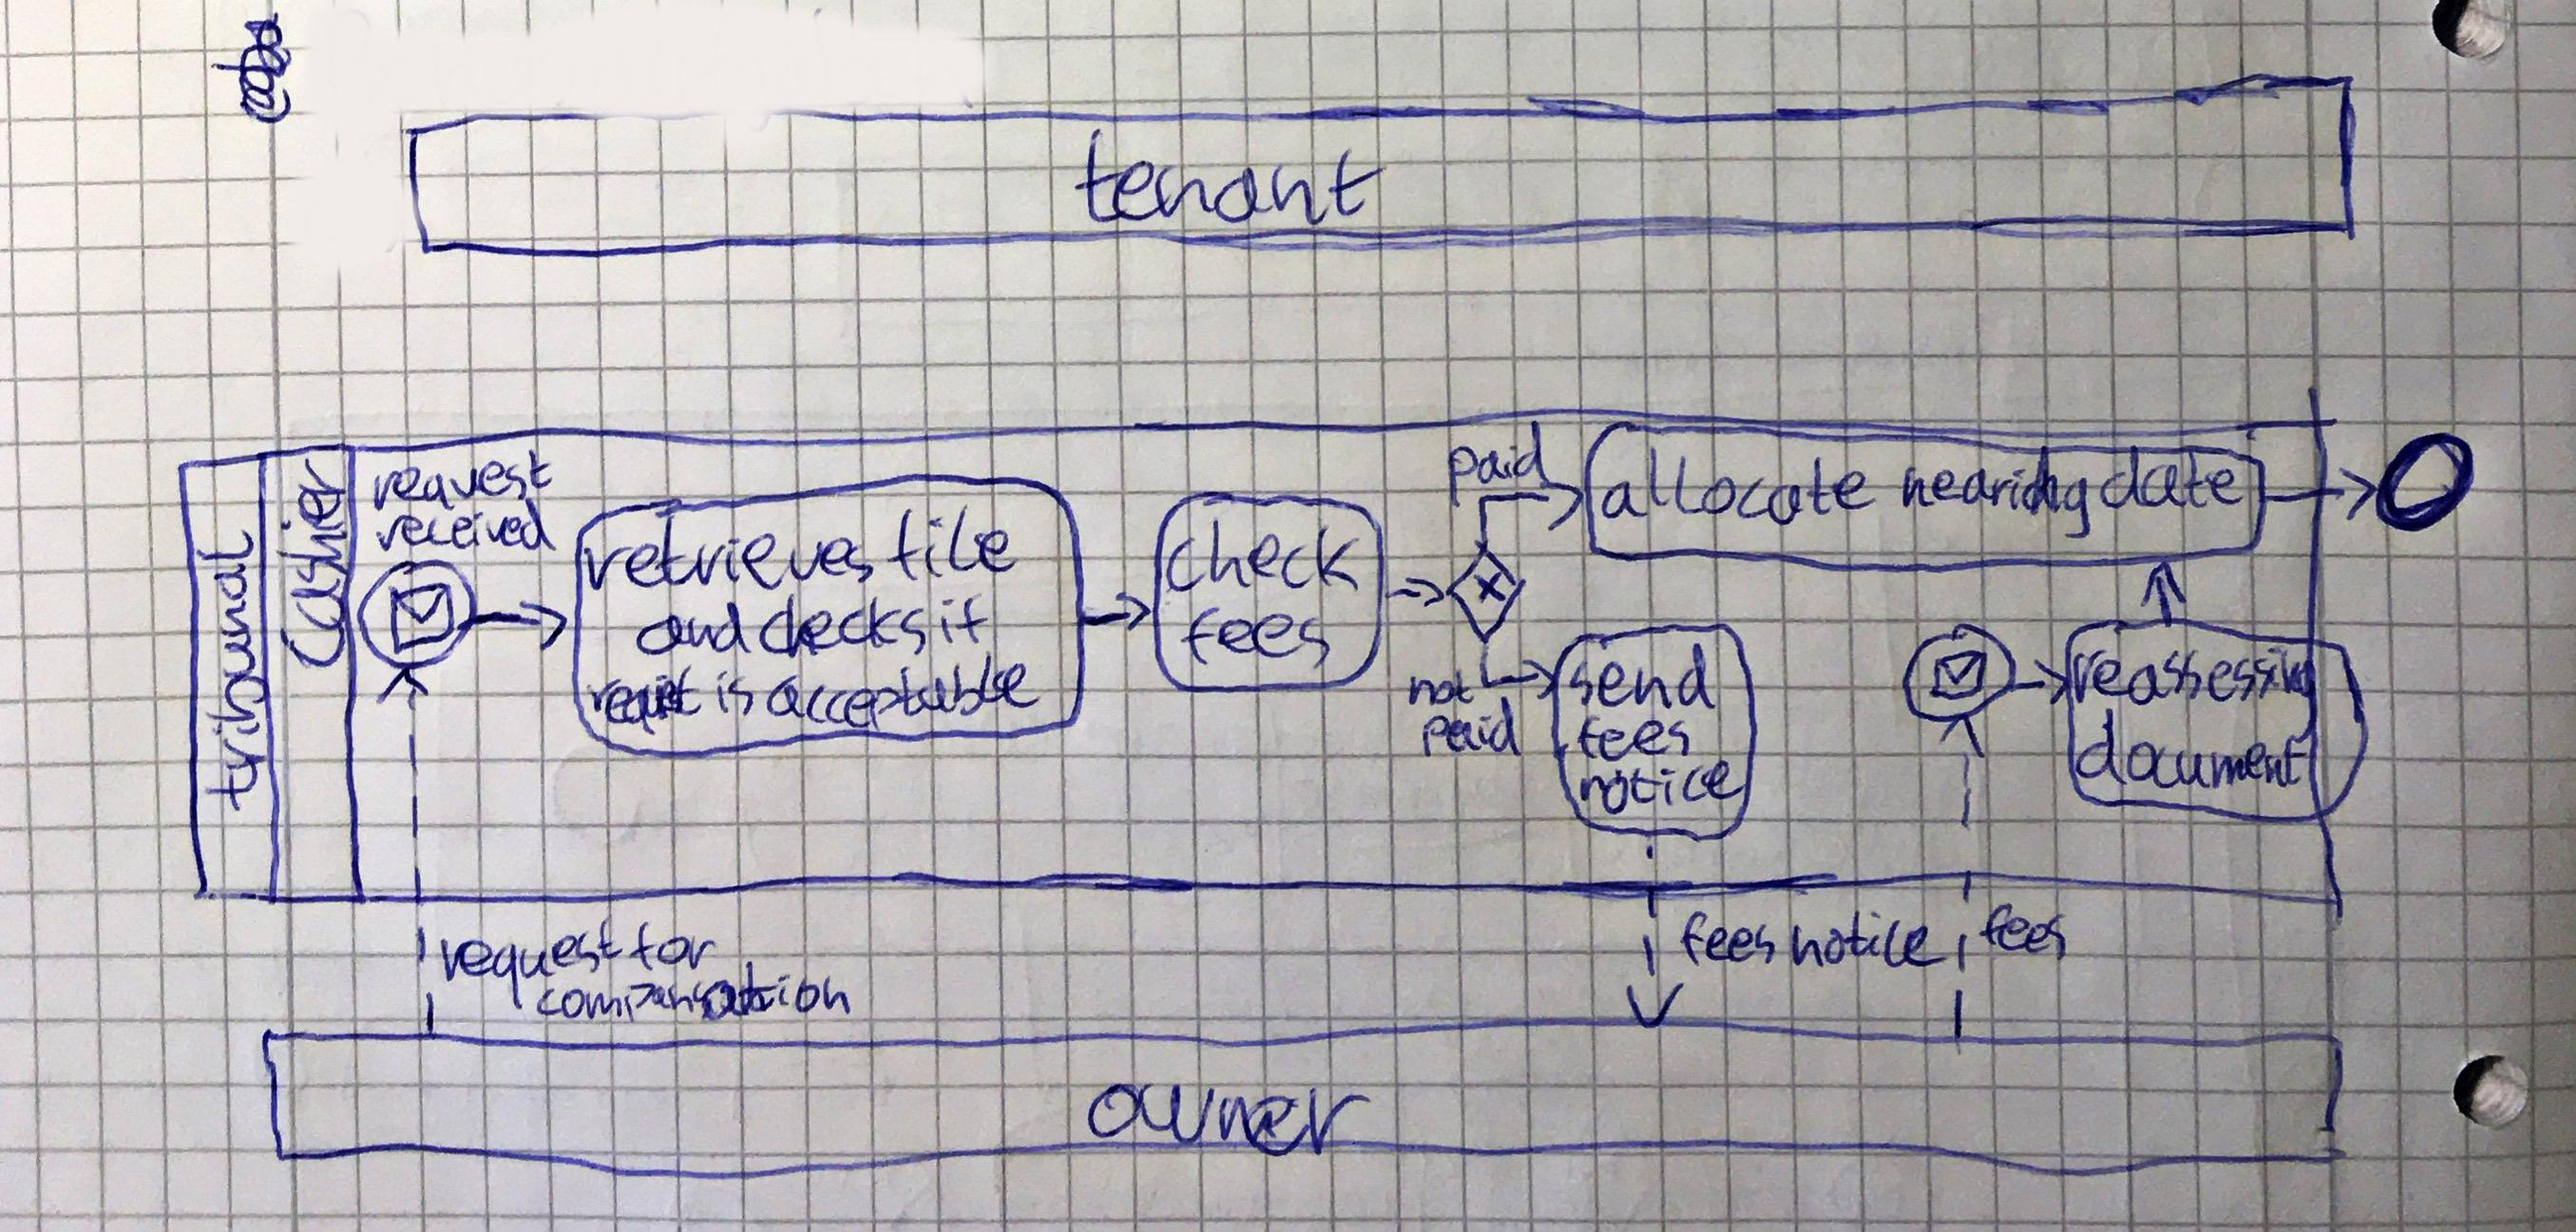 tenant
tribunal
Cashier
request
received
retrieves file
and checks if
is acceptable
check
fees
paid
not
paid
allocate hearing date
send
fees
notice
reassessing
document
request for
compensation
fees notice
fees
owner